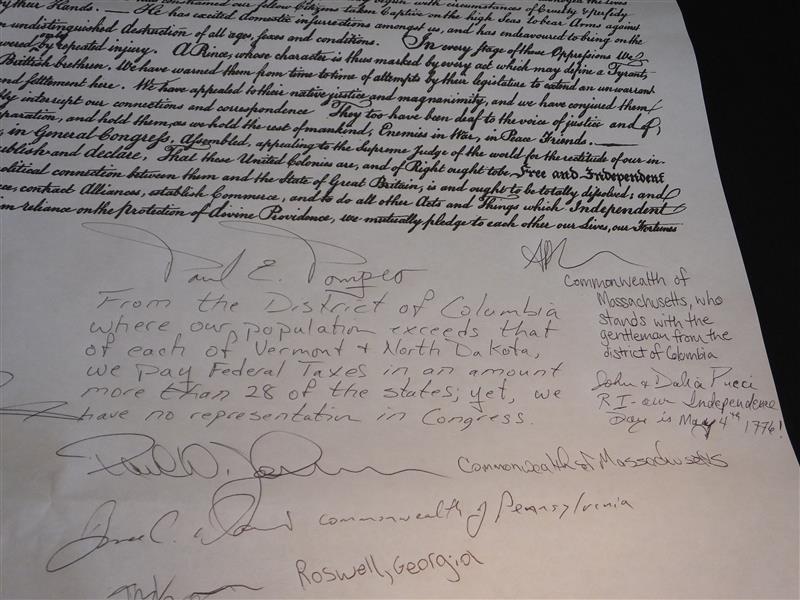 constrained our fellow Citizens taken Captive on the high Seas to bear Arms against
their Hands. — He has excited domestic insurrections amongst us, and has endeavoured to bring on the
undistinguished destruction of all ages, sexes and conditions. In every stage of these Oppressions We
only by repeated injury. A Prince, whose character is thus marked by every act which may define a Tyrant,
Brittish brethren. We have warned them from time to time of attempts by their legislature to extend an unwarrant
and settlement here. We have appealed to their native justice and magnanimity, and we have conjured them
interrupt our connections and correspondence They too have been deaf to the voice of justice and of
and hold them, as we hold the rest of mankind, Enemies in War, in Peace Friends. —
in General Congress, Assembled, appealing to the Supreme Judge of the world for the rectitude of our in-
publish and declare, That these United Colonies are, and of Right ought to be Free and Independent
political connection between them and the State of Great Britain, is and ought to be totally dissolved; and
contract Alliances, establish Commerce, and to do all other Acts and Things which Independent
reliance on the protection of divine Providence, we mutually pledge to each other our Lives, our Fortunes
Paul E. Pompeo
From the District of Columbia
where our population exceeds that
of each of Vermont & North Dakota,
we pay Federal Taxes in an amount
more than 28 of the states; yet, we
have no representation in Congress.
Commonwealth of
Massachusetts, who
stands with the
gentleman from the
district of Columbia
John & Dalia Pucci
RI - our Independence
Day is May 4th 1776!
Commonwealth of Massachusetts
commonwealth of Pennsylvania
Roswell, Georgia